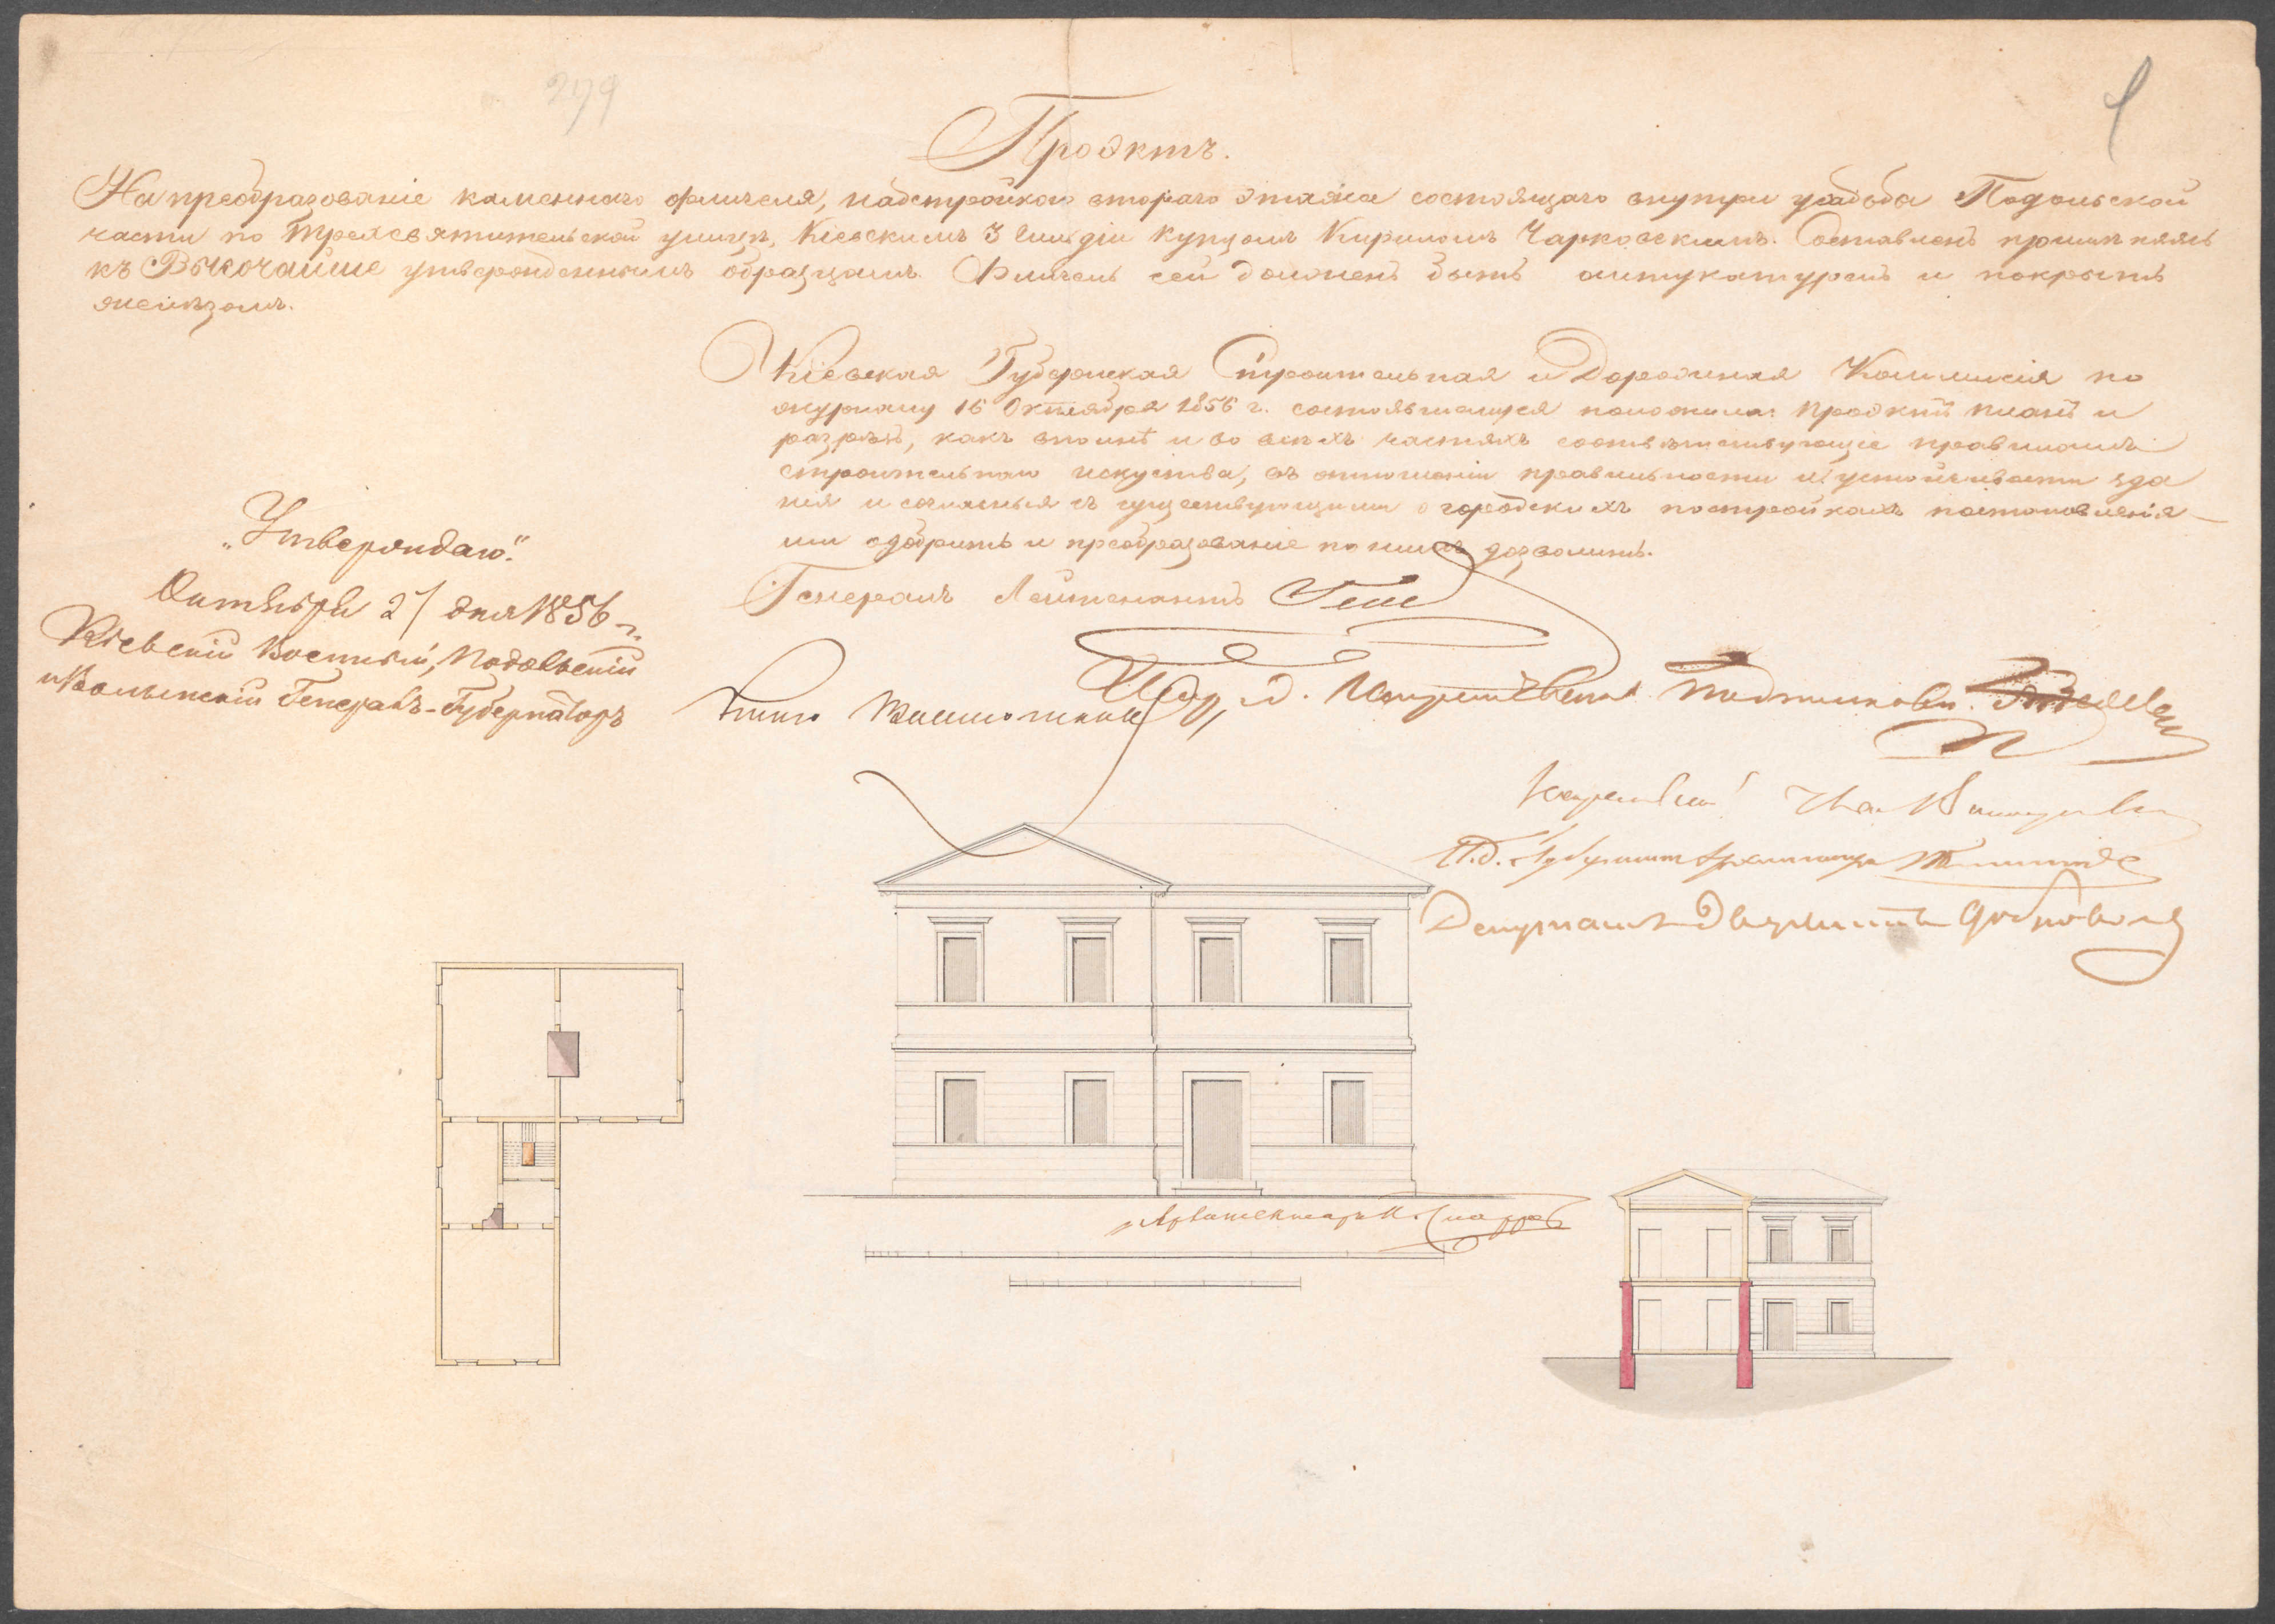 279
Проэктъ.
На преобразованіе каменнаго флигеля, надстройкою втораго этажа состоящаго внутри усадьбы Подольской
части по Трехсвятительской улицѣ, Кіевскимъ 3 гильдіи купцомъ Кириломъ Чарковскимъ. Составленъ примѣняясь
къ Высочайше утвержденнымъ образцамъ. Флигель сей долженъ быть оштукатуренъ и покрытъ
желѣзомъ.
Кіевская Губернская Строительная и Дорожная Коммисія по
журналу 16 Октября 1856 г. состоявшемуся положила: проэктъ планъ и
разрѣзъ, какъ вполнѣ и во всѣхъ частяхъ соотвѣтствующіе правиламъ
строительнаго искуства, въ отношеніи правильности и устойчивости зда
нія и согласныя съ существующими о городскихъ постройкахъ постановленія
ми одобрить и преобразованіе по нимъ дозволить.
Генералъ Лейтенантъ Гессе
„Утверждаю."
Октября 27 дня 1856 г.
Кіевскій Военный, Подольскій
и Волынскій Генералъ-Губернаторъ
Князь Васильчиковъ
И. д. Подполковн.
П. д. Губернск. Архитектора
Депутатъ Дворянства
Архитекторъ